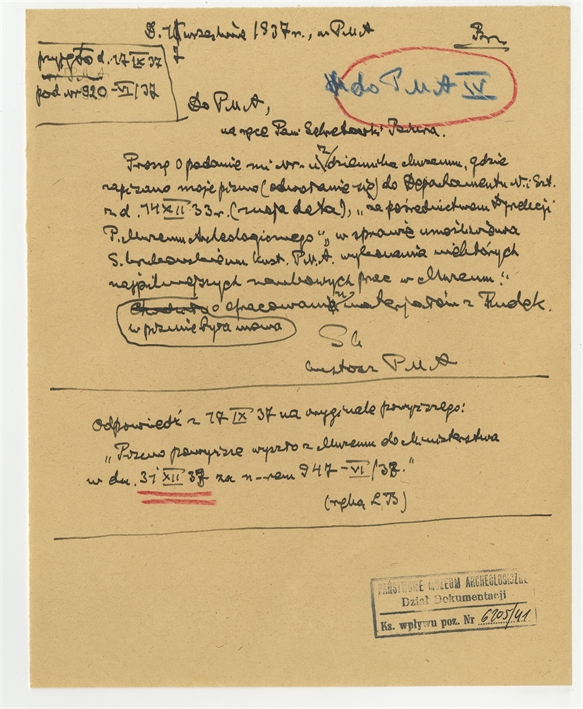 Września 1937 r., w PMA
Br.
przyjęto d. 17 IX 37
pod nr 920-VI/37
do PMA IV
Do PMA,
na ręce Pani Sekretarki
Proszę o podanie mi nr-u dziennika Muzeum, gdzie
zapisano moje pismo (odwołanie się) do Departamentu N. i Szt.
z d. 14 XII 33 r. (moja data), "za pośrednictwem Dyrekcji
P. Muzeum Archeologicznego", w sprawie umożliwienia
kust. P.M.A. wykonania niektórych
najpilniejszych naukowych prac w Muzeum."
o opracowaniu materjałów z Rudek.
w piśmie była mowa
kustosz PMA
Odpowiedź z 17 IX 37 na oryginale powyższego:
"Pismo powyższe wyszło z Muzeum do Ministerstwa
w dn. 31 XII za n-rem 947-VI/
(ręką L.B)
PAŃSTWOWE MUZEUM ARCHEOLOGICZNE
Dział Dokumentacji
Ks. wpływu poz. Nr 6205/41